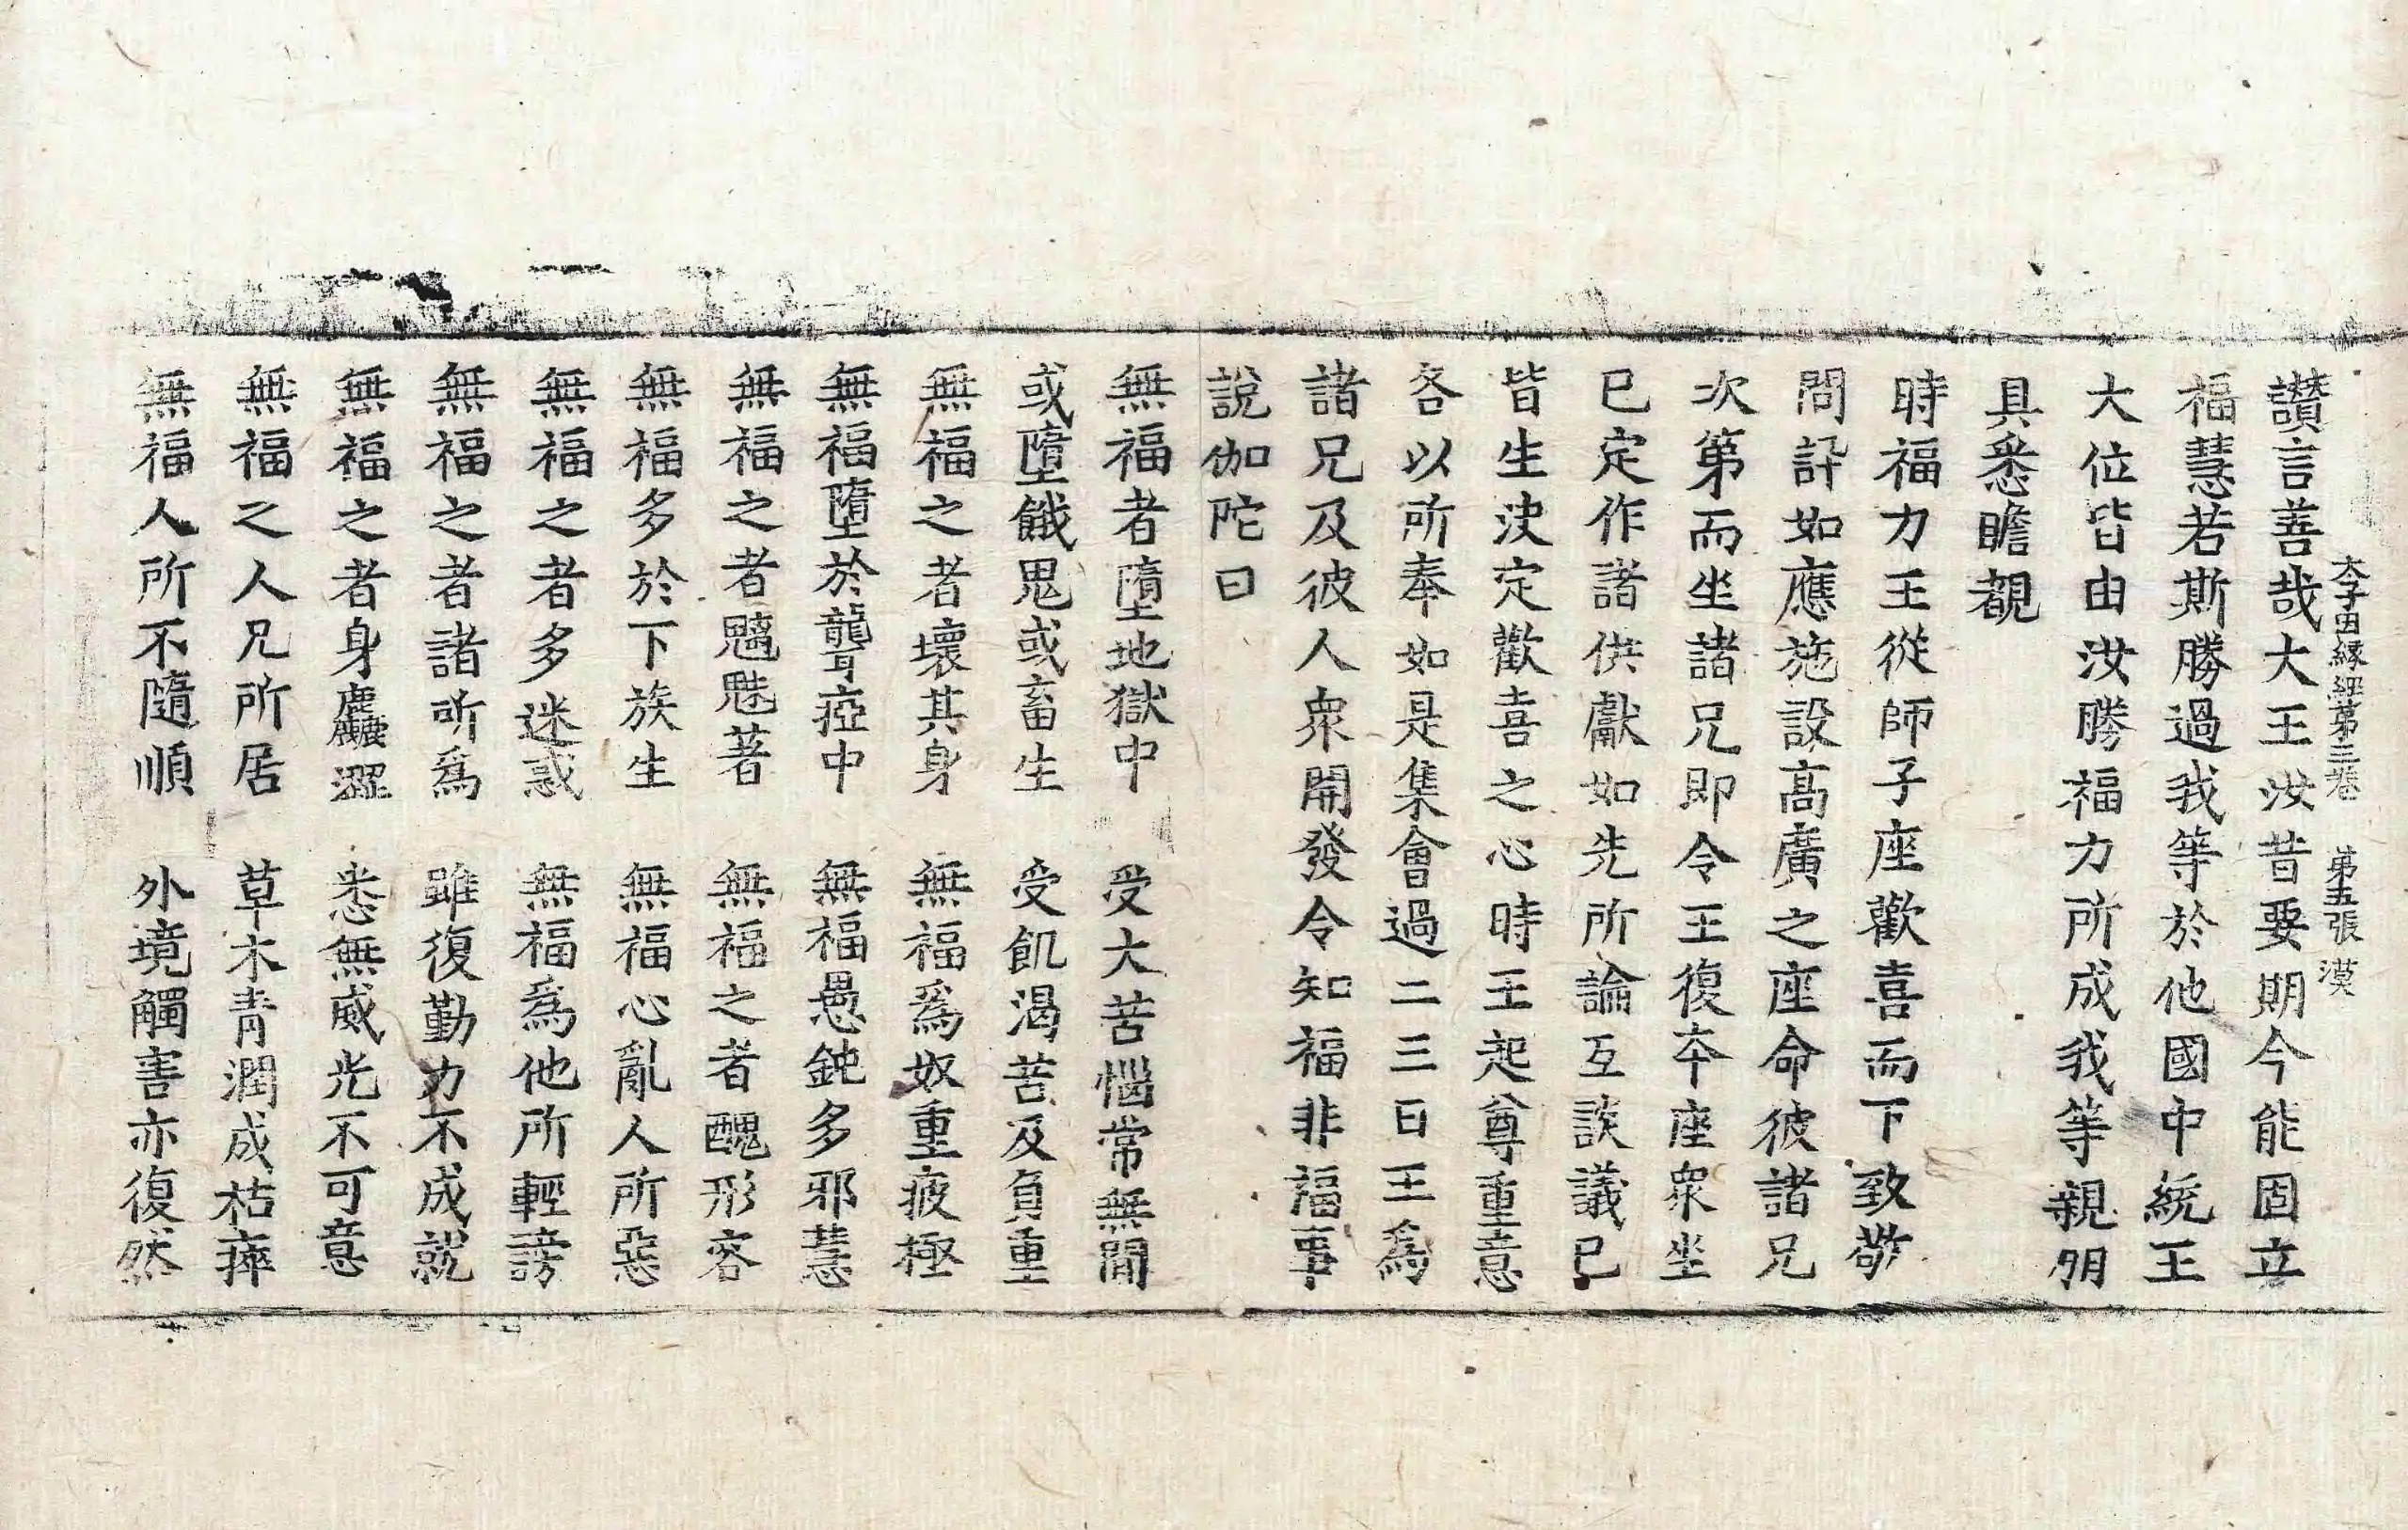 太子因緣經第三卷 第五張 漠
讃言善哉大王汝昔要期今能固立
福慧若斯勝過我等於他國中統王
大位皆由汝勝福力所成我等親朋
具悉瞻覩
時福力王從師子座歡喜而下致敬
問訊如應施設高廣之座命彼諸兄
次第而坐諸兄即令王復本座衆坐
已定作諸供獻如先所論互談議已
皆生决定歡喜之心時王起尊重意
各以所奉如是集會過二三日王爲
諸兄及彼人衆開發令知福非福事
說伽陀曰
無福者墮地獄中 受大苦惱常無間
或墮餓鬼或畜生 受飢渴苦及負重
無福之者壞其身 無福爲奴重疲極
無福墮於聾瘂中 無福愚鈍多邪慧
無福之者魑魅著 無福之者醜形容
無福多於下族生 無福心亂人所惡
無福之者多迷惑 無福爲他所輕謗
無福之者諸所爲 雖復勤力不成就
無福之者身麤澀 悉無威光不可意
無福之人兄所居 草木青潤成枯瘁
無福人所不隨順 外境觸害亦復然